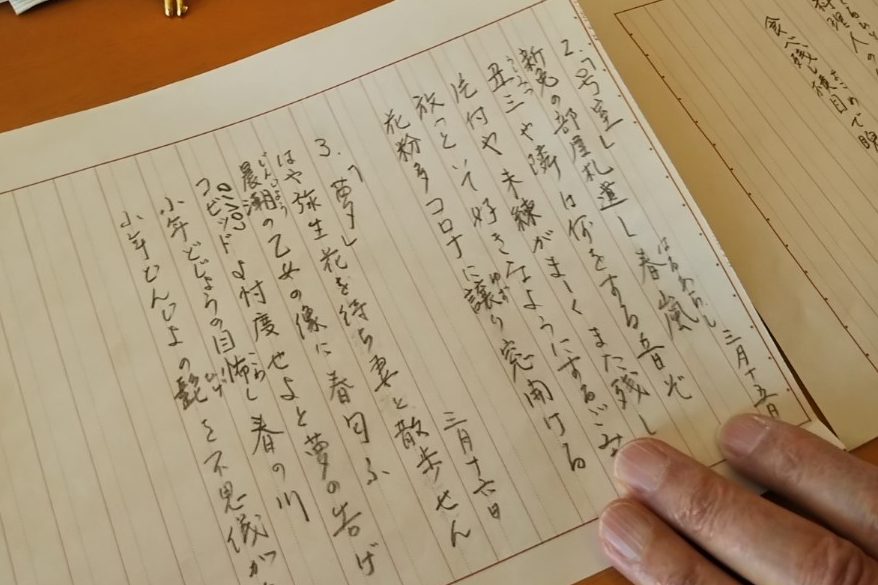 三月十五日
2.「7号室」部屋札遺し春嵐
はるあらし
新兎の部屋は何をする音ぞ
丑三つや隣
未練がましくまた残し
片付や
放っといて好きなようにするごみ
花粉多コロナに譲り窓開ける
ゆず
三月十六日
3.「夢」
はや弥生花を待ち妻と散歩せん
晨潮の乙女の像に春匂ふ
じんじょう
コビッドよ忖度せよと夢の告げ
小年どじょうの目怖し春の川
こわ
小年どんじょの髭を不思儀が
ひげ
料理人の
食べ残し横目で睨
よこめ